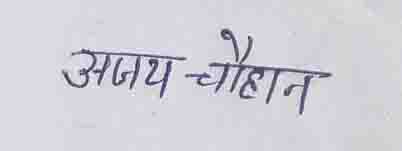 अजय चौहान